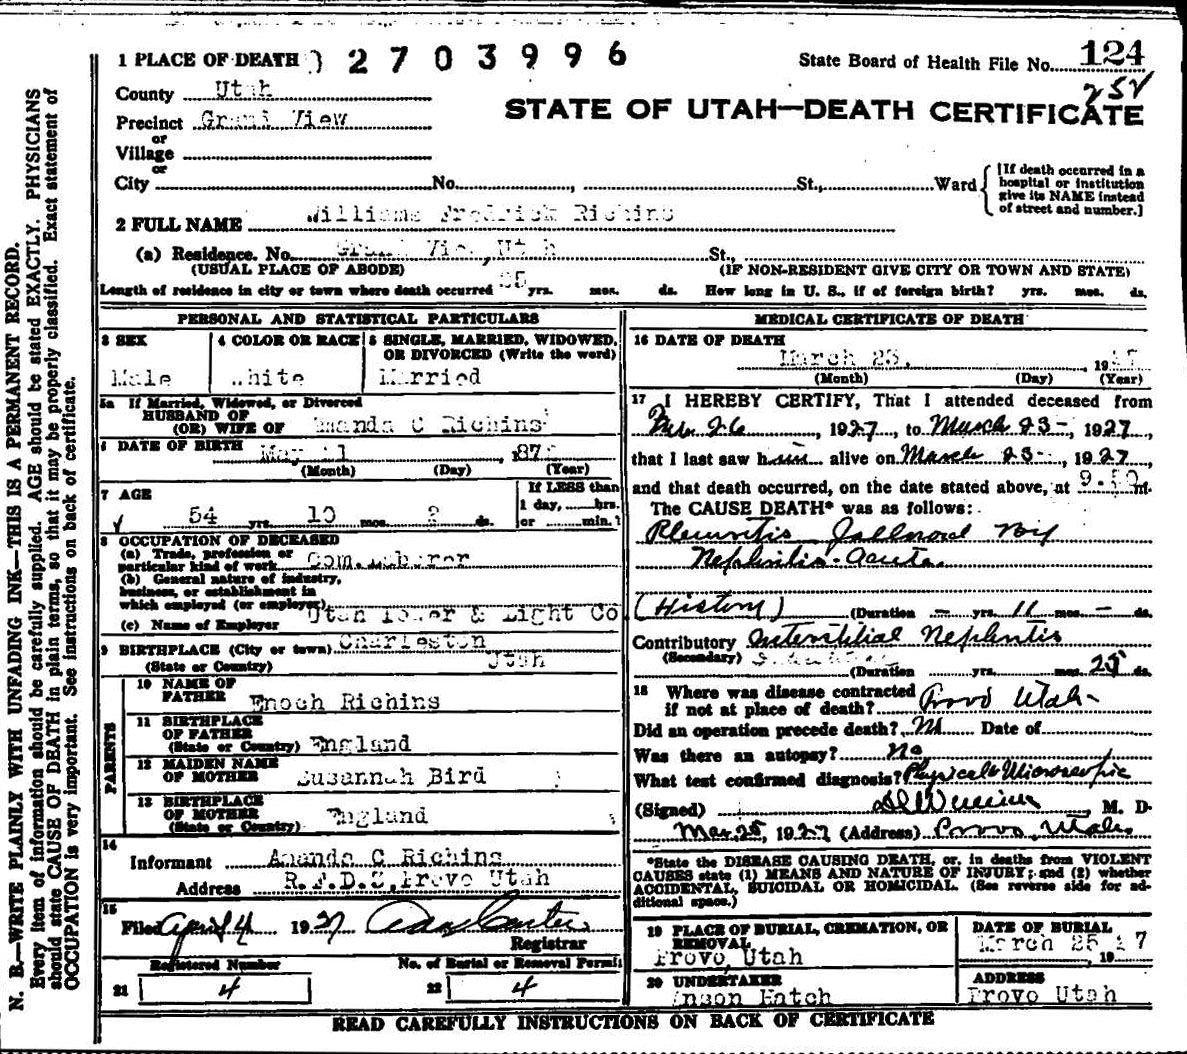 N. B.—WRITE PLAINLY WITH UNFADING INK—THIS IS A PERMANENT RECORD.
Every item of information should be carefully supplied. AGE should be stated EXACTLY. PHYSICIANS
should state CAUSE OF DEATH in plain terms, so that it may be properly classified. Exact statement of
OCCUPATION is very important. See instructions on back of certificate.
1 PLACE OF DEATH 2703996
State Board of Health File No. 124
252
County Utah
STATE OF UTAH—DEATH CERTIFICATE
Precinct Grand View
or
Village
or
City No. , St., Ward
[If death occurred in a
hospital or institution
give its NAME instead
of street and number.]
2 FULL NAME Williams Fredrick Richins
(a) Residence. No. Grand View, Utah St.,
(USUAL PLACE OF ABODE) (IF NON-RESIDENT GIVE CITY OR TOWN AND STATE)
Length of residence in city or town where death occurred yrs. mos. ds. How long in U. S., if of foreign birth? yrs. mos. ds.
PERSONAL AND STATISTICAL PARTICULARS
3 SEX
4 COLOR OR RACE
5 SINGLE, MARRIED, WIDOWED, OR DIVORCED (Write the word)
Male White Married
5a If Married, Widowed, or Divorced
HUSBAND OF
(OR) WIFE OF Amanda C Richins
6 DATE OF BIRTH May
(Month) (Day) (Year)
7 AGE
54 yrs. 10 mos. 2 ds.
If LESS than
1 day, hrs.
or min.
8 OCCUPATION OF DECEASED
(a) Trade, profession or
particular kind of work Com. Laborer
(b) General nature of industry,
business, or establishment in
which employed (or employer)
(c) Name of Employer Utah Power & Light Co
9 BIRTHPLACE (City or town) Charleston
(State or Country) Utah
PARENTS
10 NAME OF
FATHER Enoch Richins
11 BIRTHPLACE
OF FATHER
(State or Country) England
12 MAIDEN NAME
OF MOTHER Susannah Bird
13 BIRTHPLACE
OF MOTHER
(State or Country) England
14
Informant Amanda C Richins
Address R.F.D. Provo Utah
15
Filed April 4 1927
Registrar
Registered Number
21 4
No. of Burial or Removal Permit
22 4
MEDICAL CERTIFICATE OF DEATH
16 DATE OF DEATH
March 23, 1927
(Month) (Day) (Year)
17 I HEREBY CERTIFY, That I attended deceased from
Feb. 26, 1927, to March 23-, 1927,
that I last saw him alive on March 23-, 1927,
and that death occurred, on the date stated above, at 9.50 m.
The CAUSE DEATH* was as follows:
Nephritis-acute.
(History) (Duration — yrs. 11 mos. — ds.
Contributory Interstitial Nephritis
(Secondary)
(Duration yrs. mos. 25 ds.
18 Where was disease contracted
if not at place of death? Provo Utah-
Did an operation precede death? No Date of
Was there an autopsy? No
What test confirmed diagnosis? Physical & Microscopic
(Signed) M. D.
Mar. 25, 1927 (Address) Provo, Utah.
*State the DISEASE CAUSING DEATH, or, in deaths from VIOLENT
CAUSES state (1) MEANS AND NATURE OF INJURY; and (2) whether
ACCIDENTAL, SUICIDAL OR HOMICIDAL. (See reverse side for ad-
ditional space.)
19 PLACE OF BURIAL, CREMATION, OR
REMOVAL
Provo, Utah
DATE OF BURIAL
March 25 27
19
20 UNDERTAKER
Anson Hatch
ADDRESS
Provo Utah
READ CAREFULLY INSTRUCTIONS ON BACK OF CERTIFICATE